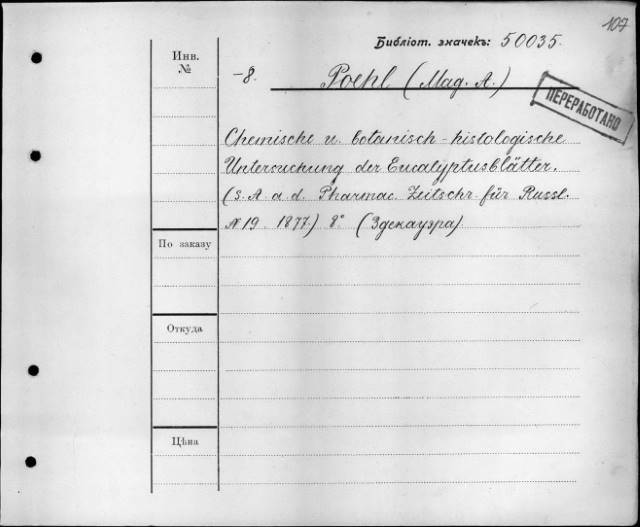 107
Библіот. значекъ: 50035.
Инв. №
-8. Poehl (Mag. A.)
ПЕРЕРАБОТАНО
Chemische u. botanisch-histologische
Untersuchung der Eucalyptusblätter.
(S. A. a. d. Pharmac. Zeitschr. für Russl.
N 19. 1877.) 8° (Здекауэра)
По заказу
Откуда
Цѣна